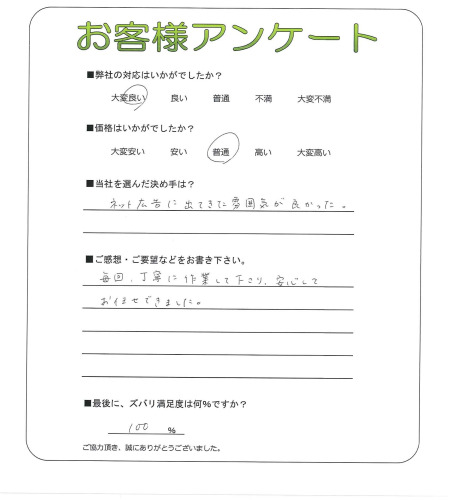 お客様アンケート
■弊社の対応はいかがでしたか？
大変良い 良い 普通 不満 大変不満
■価格はいかがでしたか？
大変安い 安い 普通 高い 大変高い
■当社を選んだ決め手は？
ネット広告に出てきた雰囲気が良かった。
■ご感想・ご要望などをお書き下さい。
毎回、丁寧に作業して下さり、安心して
お任せできました。
■最後に、ズバリ満足度は何%ですか？
100 %
ご協力頂き、誠にありがとうございました。